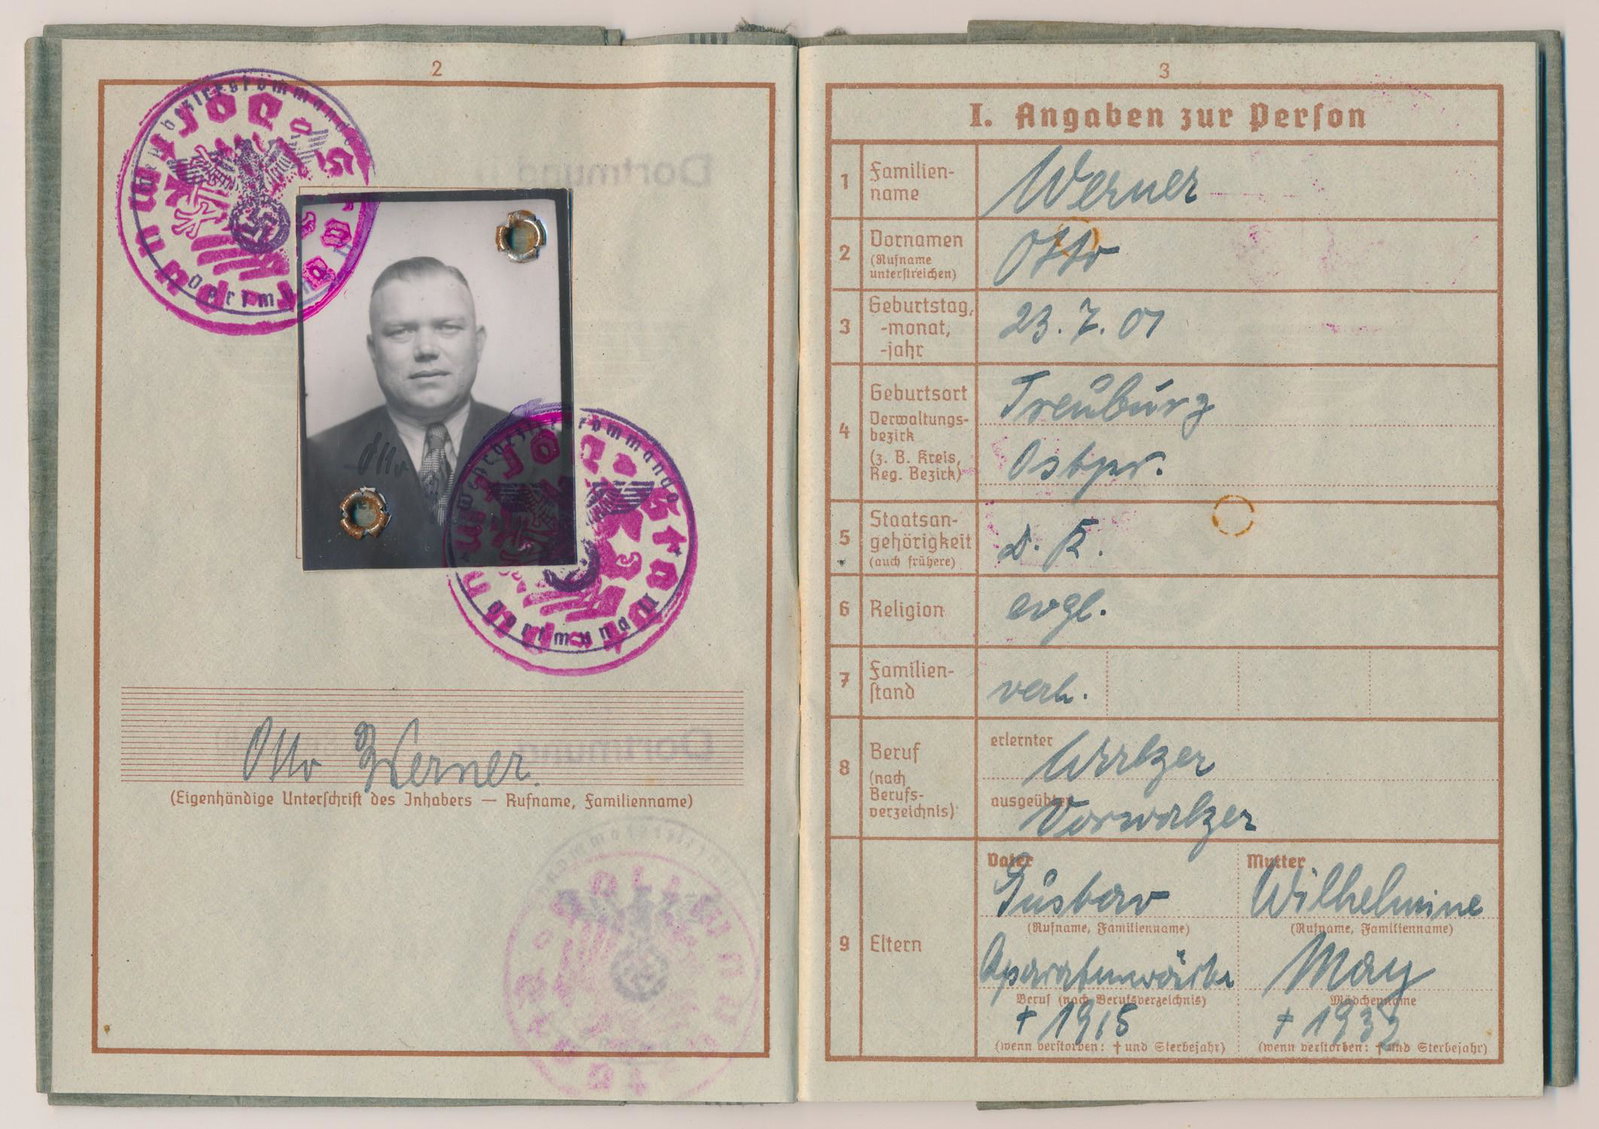 2
Wehrbezirkskommando
Dortmund
Otto
Wehrbezirkskommando
Dortmund
Otto Werner.
(Eigenhändige Unterschrift des Inhabers — Rufname, Familienname)
3
I. Angaben zur Person
1 Familien-
name
Werner
2 Vornamen
(Rufname
unterstreichen)
Otto
3 Geburtstag,
-monat,
-jahr
23.7.01
4 Geburtsort
Verwaltungs-
bezirk
(z. B. Kreis,
Reg. Bezirk)
Treuburg
Ostpr.
5 Staatsan-
gehörigkeit
(auch frühere)
D. R.
6 Religion
evgl.
7 Familien-
stand
verh.
8 Beruf
(nach
Berufs-
verzeichnis)
erlernter
Walzer
ausgeübter
Vorwalzer
9 Eltern
Vater
Gustav
(Rufname, Familienname)
Aparatenwärter
Beruf (nach Berufsverzeichnis)
† 1918
(wenn verstorben: † und Sterbejahr)
Mutter
Wilhelmine
(Rufname, Familienname)
May
Mädchenname
(wenn verstorben: † und Sterbejahr)